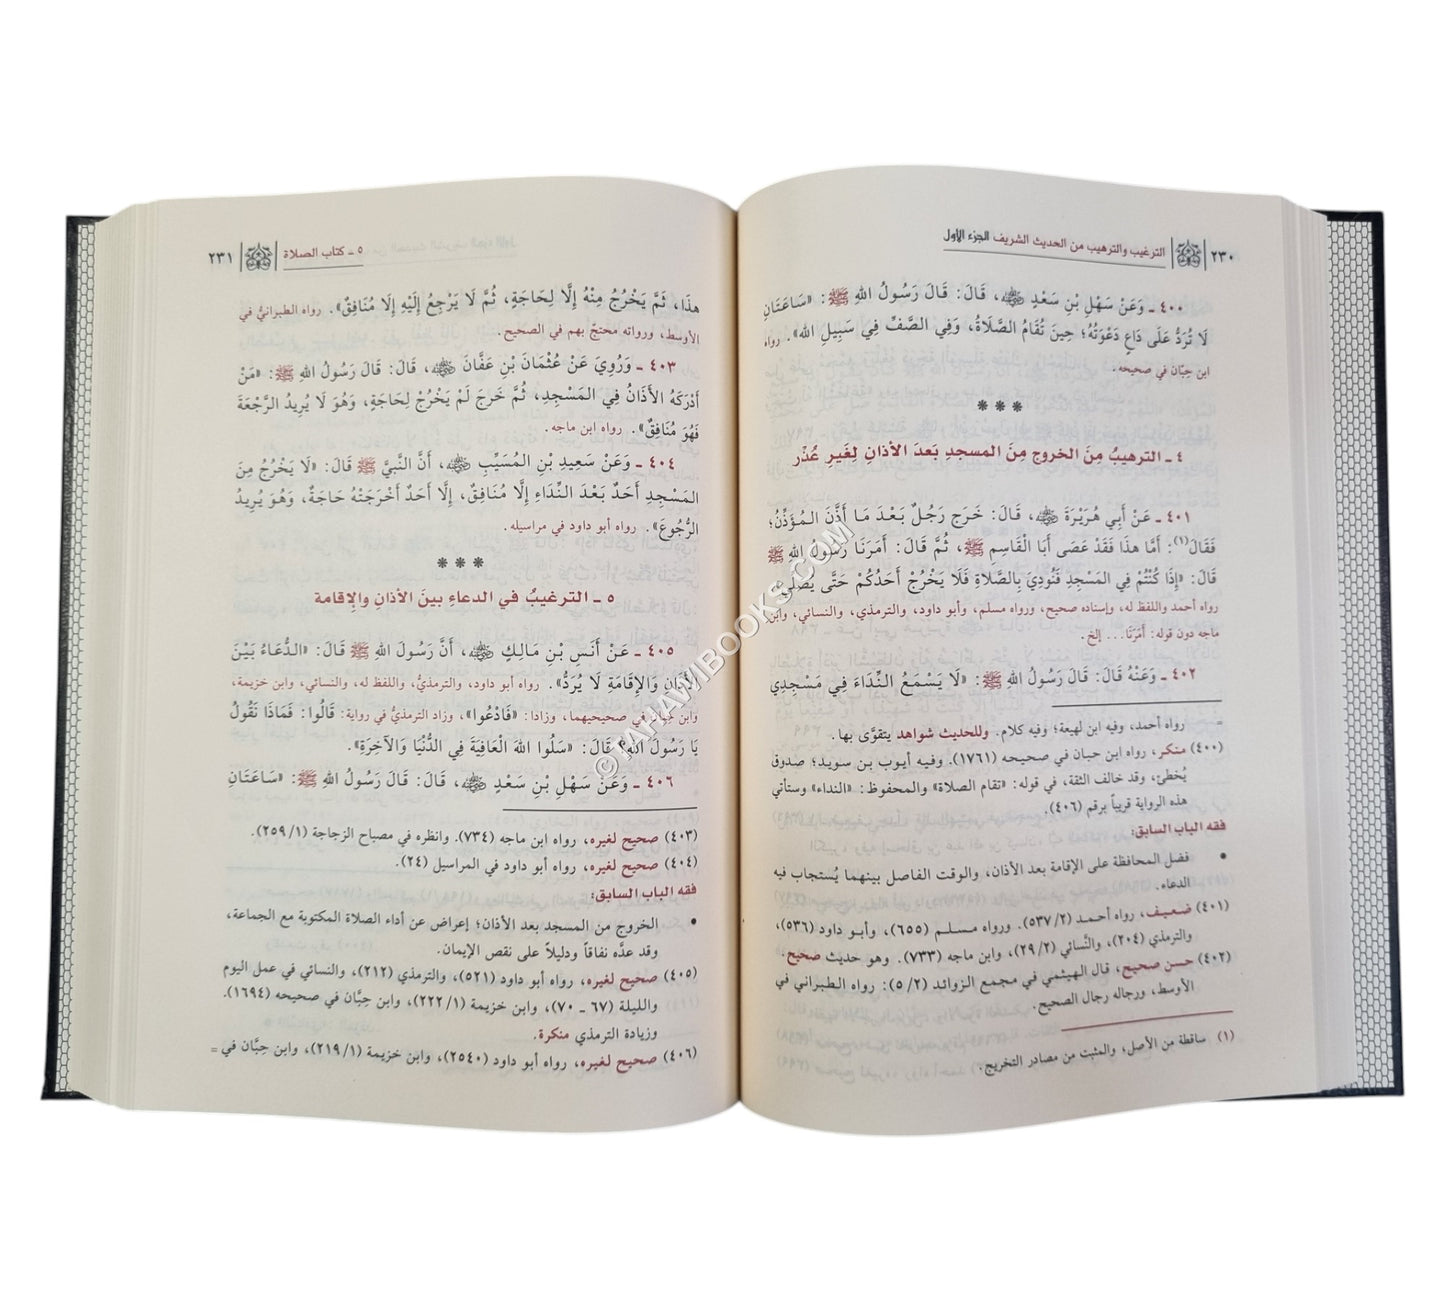 ٢٣٠ الترغيب والترهيب من الحديث الشريف الجزء الأول
٤٠٠ ـ وَعَنْ سَهْلِ بْنِ سَعْدٍ رضي الله عنه، قَالَ: قَالَ رَسُولُ اللهِ ﷺ: «سَاعَتَانِ
لَا تُرَدُّ عَلَى دَاعٍ دَعْوَتُهُ؛ حِينَ تُقَامُ الصَّلَاةُ، وَفِي الصَّفِّ فِي سَبِيلِ اللهِ». رواه
ابن حِبَّان في صحيحه.
* * *
٤ ـ الترهيبُ مِنَ الخروج مِنَ المسجدِ بَعدَ الأذانِ لِغَيرِ عُذْرٍ
٤٠١ ـ عَنْ أَبِي هُرَيْرَةَ رضي الله عنه، قَالَ: خَرَجَ رَجُلٌ بَعْدَ مَا أَذَّنَ الْمُؤَذِّنُ؛
فَقَالَ(١): أَمَّا هذَا فَقَدْ عَصَى أَبَا الْقَاسِمِ ﷺ، ثُمَّ قَالَ: أَمَرَنَا رَسُولُ اللهِ ﷺ
قَالَ: «إِذَا كُنْتُمْ فِي الْمَسْجِدِ فَنُودِيَ بِالصَّلَاةِ فَلَا يَخْرُجْ أَحَدُكُمْ حَتَّى يُصَلِّيَ»
رواه أحمد واللفظ له، وإسناده صحيح، ورواه مسلم، وأبو داود، والترمذي، والنسائي، وابن
ماجه دون قوله: أَمَرَنَا... إلخ.
٤٠٢ ـ وَعَنْهُ قَالَ: قَالَ رَسُولُ اللهِ ﷺ: «لَا يَسْمَعُ النِّدَاءَ فِي مَسْجِدِي
= رواه أحمد، وفيه ابن لهيعة؛ وفيه كلام. وللحديث شواهد يتقوَّى بها.
(٤٠٠) منكر، رواه ابن حبان في صحيحه (١٧٦١). وفيه أيوب بن سويد؛ صدوق
يُخطئ، وقد خالف الثقة، في قوله: «تقام الصلاة» والمحفوظ: «النداء» وستأتي
هذه الرواية قريباً برقم (٤٠٦).
فقه الباب السابق:
• فضل المحافظة على الإقامة بعد الأذان، والوقت الفاصل بينهما يُستجاب فيه
الدعاء.
(٤٠١) ضعيف، رواه أحمد (٢/ ٥٣٧). ورواه مسلم (٦٥٥)، وأبو داود (٥٣٦)،
والترمذي (٢٠٤)، والنَّسائي (٢/ ٢٩)، وابن ماجه (٧٣٣). وهو حديث صحيح.
(٤٠٢) حسن صحيح، قال الهيثمي في مجمع الزوائد (٢/ ٥): رواه الطبراني في
الأوسط، ورجاله رجال الصحيح.
(١) ساقطة من الأصل، والمثبت من مصادر التخريج.
٥ ـ كتاب الصلاة ٢٣١
هذَا، ثَمَّ يَخْرُجُ مِنْهُ إِلَّا لِحَاجَةٍ، ثُمَّ لَا يَرْجِعُ إِلَيْهِ إِلَّا مُنَافِقٌ». رواه الطبرانيُّ في
الأوسط، ورواته محتجّ بهم في الصحيح.
٤٠٣ ـ وَرُوِيَ عَنْ عُثْمَانَ بْنِ عَفَّانَ رضي الله عنه، قَالَ: قَالَ رَسُولُ اللهِ ﷺ: «مَنْ
أَدْرَكَهُ الأَذَانُ فِي الْمَسْجِدِ، ثُمَّ خَرَجَ لَمْ يَخْرُجْ لِحَاجَةٍ، وَهُوَ لَا يُرِيدُ الرَّجْعَةَ
فَهُوَ مُنَافِقٌ». رواه ابن ماجه.
٤٠٤ ـ وَعَنْ سَعِيدِ بْنِ الْمُسَيِّبِ رضي الله عنه، أَنَّ النَّبِيَّ ﷺ قَالَ: «لَا يَخْرُجُ مِنَ
الْمَسْجِدِ أَحَدٌ بَعْدَ النِّدَاءِ إِلَّا مُنَافِقٌ، إِلَّا أَحَدٌ أَخْرَجَتْهُ حَاجَةٌ، وَهُوَ يُرِيدُ
الرُّجُوعَ». رواه أبو داود في مراسيله.
* * *
٥ ـ الترغيبُ في الدعاءِ بينَ الأذانِ والإقامة
٤٠٥ ـ عَنْ أَنَسِ بْنِ مَالِكٍ رضي الله عنه، أَنَّ رَسُولَ اللهِ ﷺ قَالَ: «الدُّعَاءُ بَيْنَ
الأَذَانِ وَالإِقَامَةِ لَا يُرَدُّ». رواه أبو داود، والترمذيُّ، واللفظ له، والنسائي، وابن خزيمة،
وابن حِبَّان في صحيحيهما، وزادا: «فَادْعُوا»، وزاد الترمذيُّ في رواية: قَالُوا: فَمَاذَا نَقُولُ
يَا رَسُولَ اللهِ؟ قَالَ: «سَلُوا اللهَ الْعَافِيَةَ فِي الدُّنْيَا وَالآخِرَةِ».
٤٠٦ ـ وَعَنْ سَهْلِ بْنِ سَعْدٍ رضي الله عنه، قَالَ: قَالَ رَسُولُ اللهِ ﷺ: «سَاعَتَانِ
(٤٠٣) صحيح لغيره، رواه ابن ماجه (٧٣٤). وانظره في مصباح الزجاجة (١/ ٢٥٩).
(٤٠٤) صحيح لغيره، رواه أبو داود في المراسيل (٢٤).
فقه الباب السابق:
• الخروج من المسجد بعد الأذان؛ إعراض عن أداء الصلاة المكتوبة مع الجماعة،
وقد عدَّه نفاقاً ودليلاً على نقص الإيمان.
(٤٠٥) صحيح لغيره، رواه أبو داود (٥٢١)، والترمذي (٢١٢)، والنسائي في عمل اليوم
والليلة (٦٧ ـ ٧٠)، وابن خزيمة (١/ ٢٢٢)، وابن حِبَّان في صحيحه (١٦٩٤).
وزيادة الترمذي منكرة.
(٤٠٦) صحيح لغيره، رواه أبو داود (٢٥٤٠)، وابن خزيمة (١/ ٢١٩)، وابن حِبَّان في =
© TAHAWIBOOKS.COM